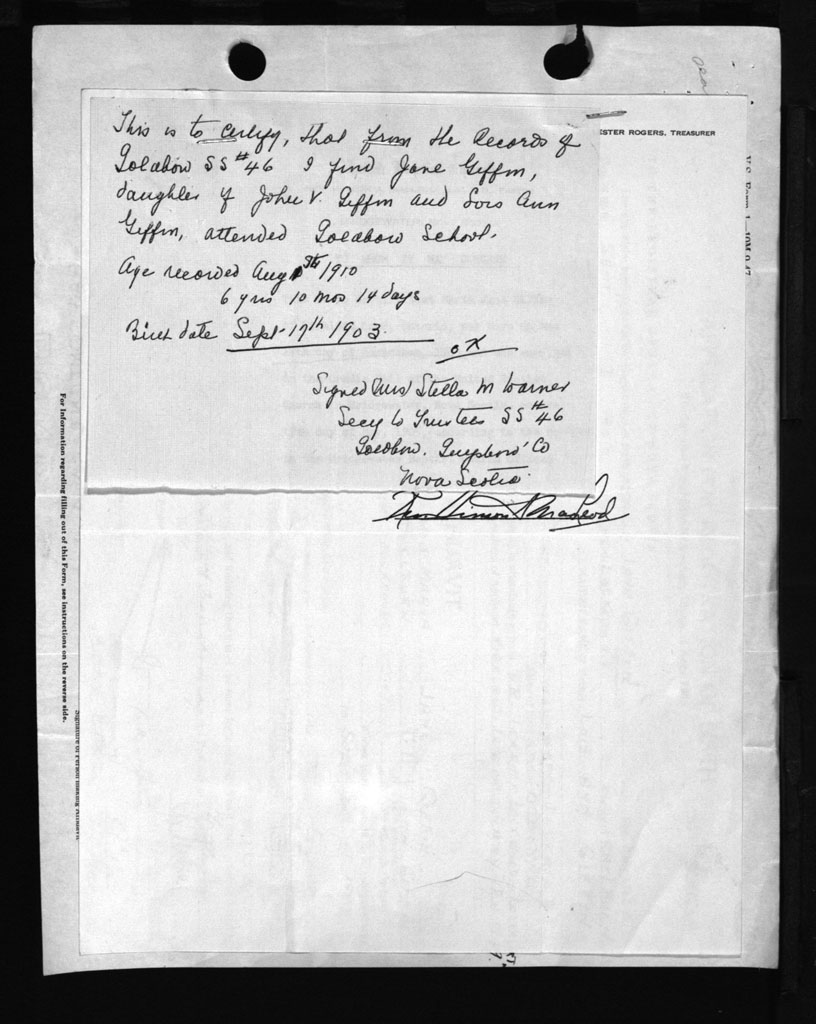 This is to certify, that from the Records of
Goldboro SS #46 I find Jane Giffin,
daughter of John V. Giffin and Lois Ann
Giffin, attended Goldboro School.
Age recorded Aug 1910
6 yrs 10 mos 14 days
Birth date Sept 17th 1903
OK
Signed Mrs Stella M Warner
Secy to Trustees SS #46
Goldboro. Guysboro' Co
Nova Scotia
MacLeod
ESTER ROGERS, TREASURER
For Information regarding filling out of this Form, see instructions on the reverse side.